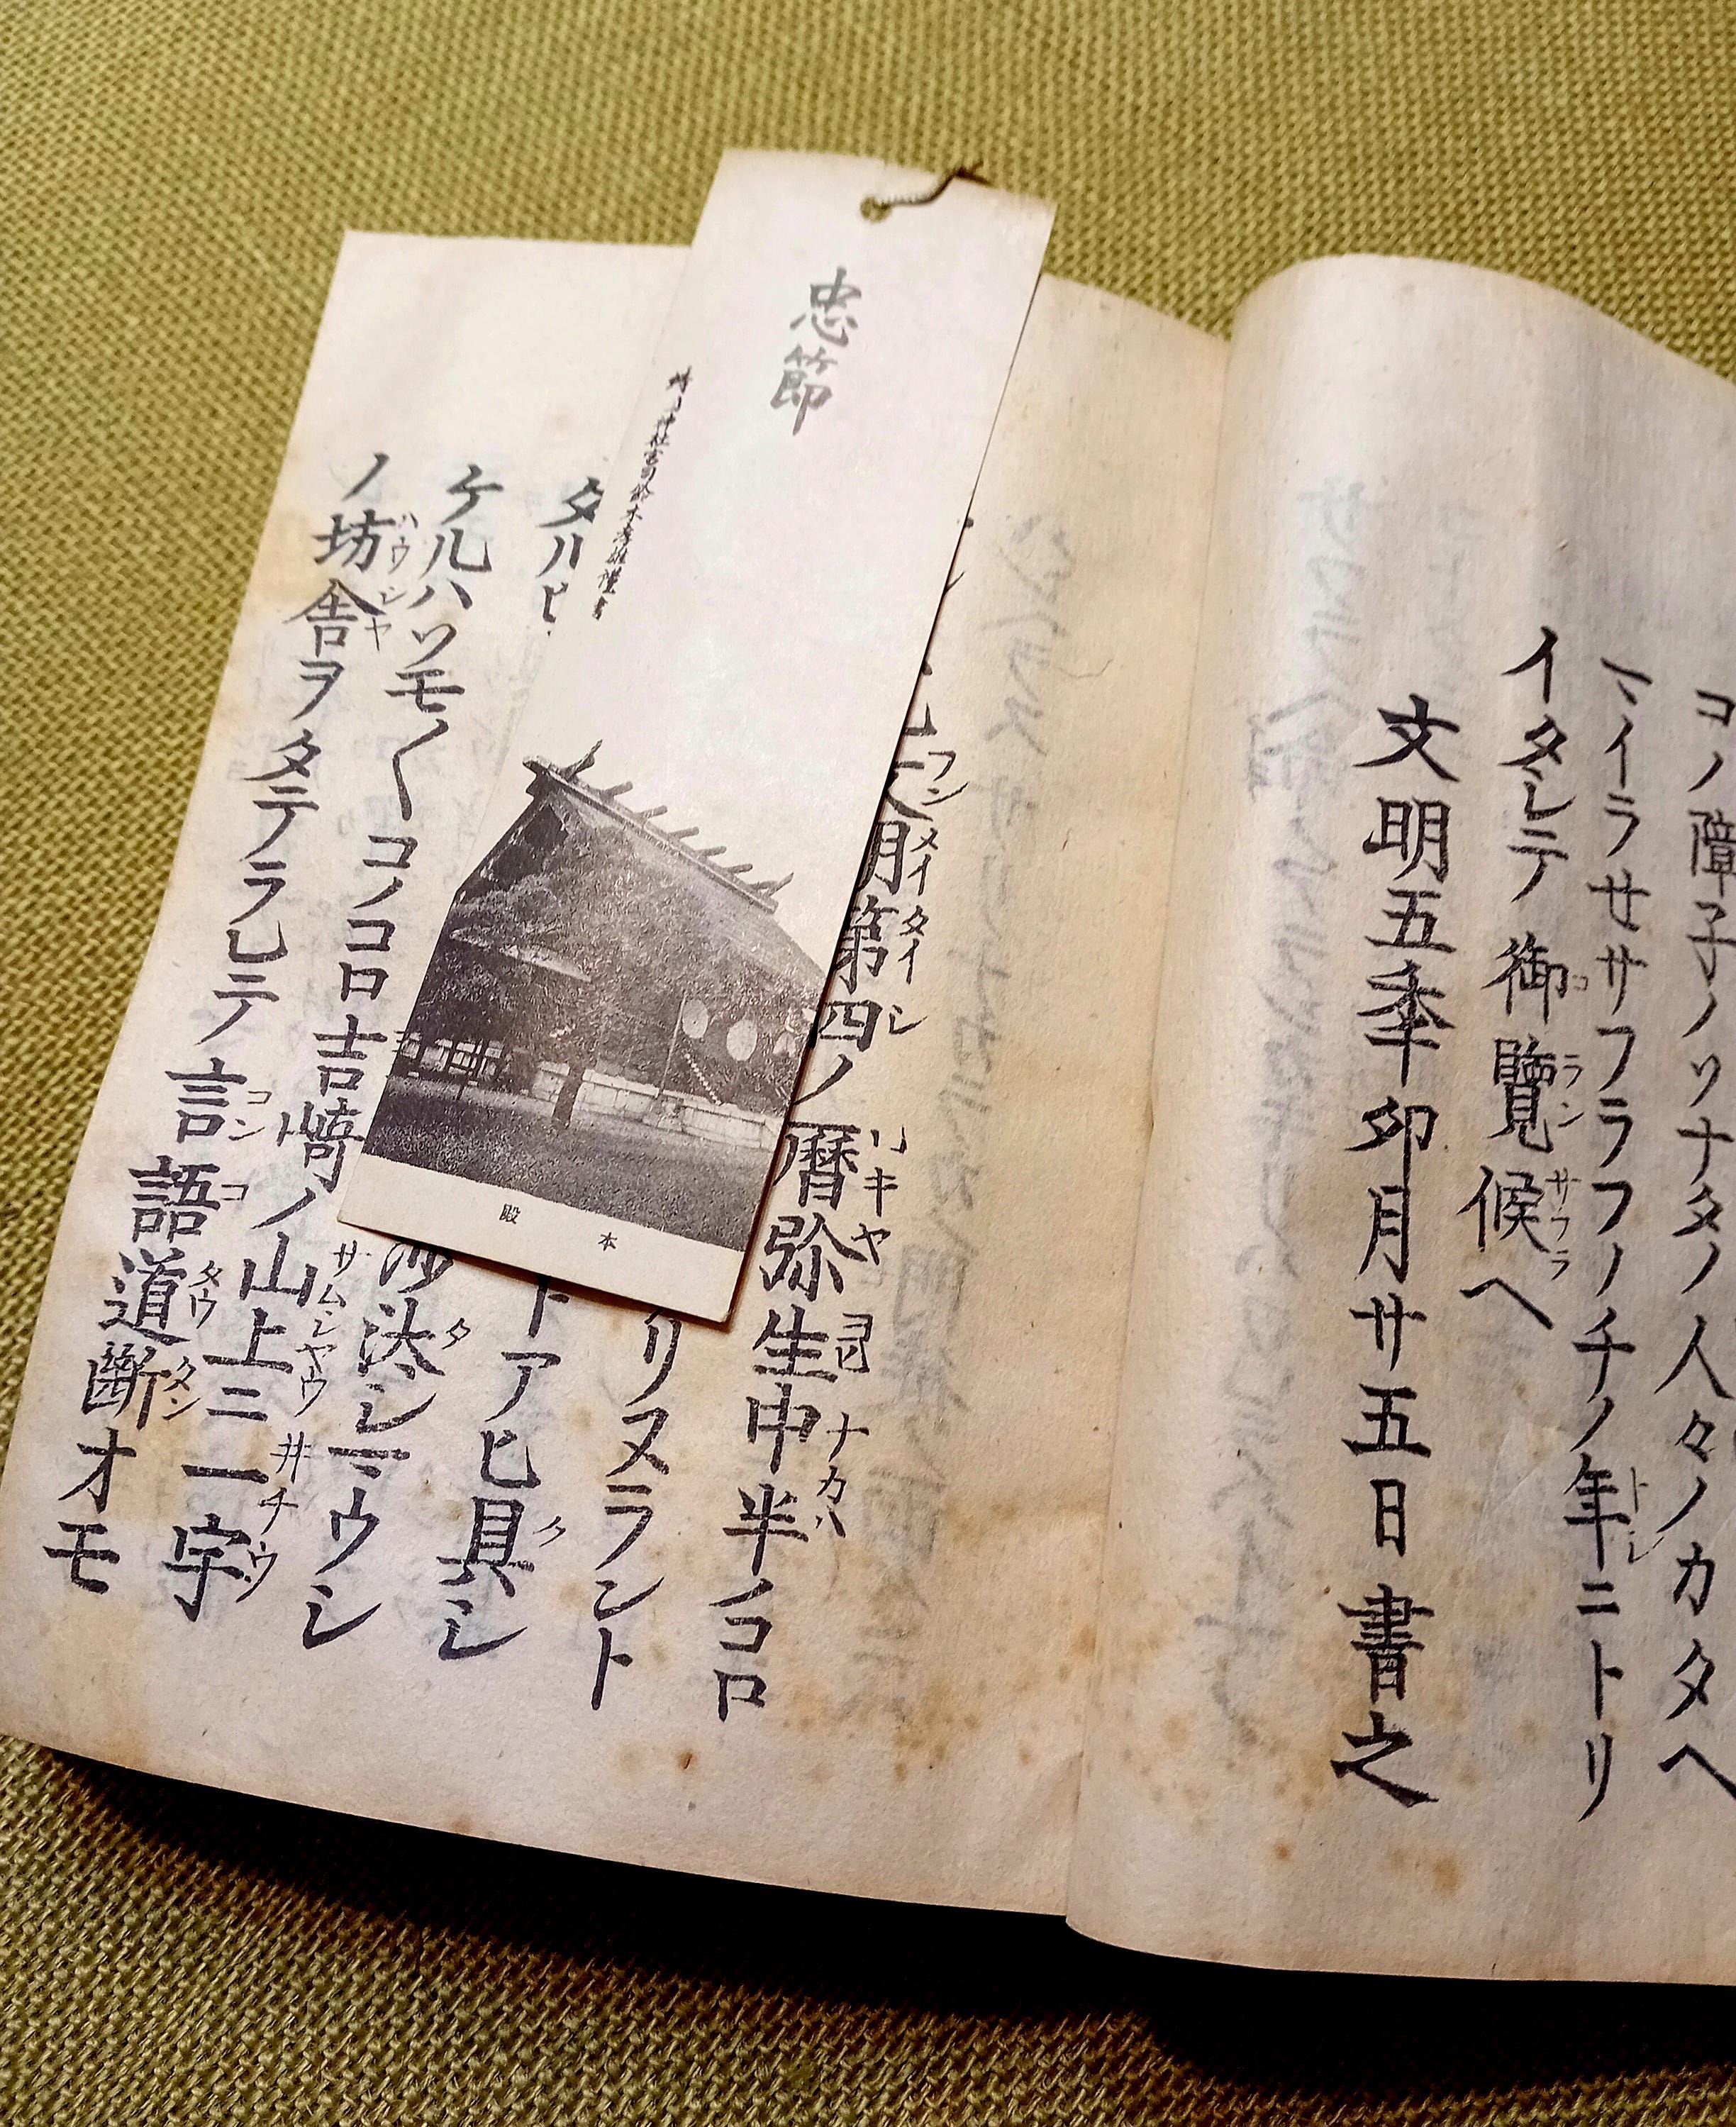 コノ障子ノソナタノ人々ノカタヘ
マイラセサフラフノチノ年ニトリ
イタレテ御覧候ヘ
文明五年卯月廿五日書之
明第四ノ暦弥生中半ノコロ
リヌラント
タハ
トアヒ具シ
ケルハソモ〱コノコロ吉崎ノ山上ニ一宇
沙汰シマウシ
ノ坊舎ヲタテラレテ言語道断オモ
忠節
神社宮司鈴木孝雄謹書
本殿